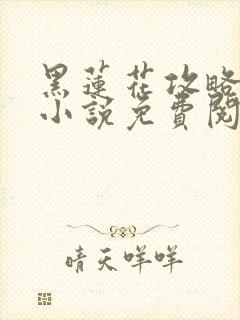 黑蓮花攻略
小説免費閱
晴天咩咩